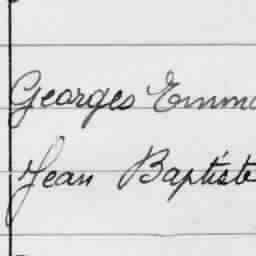 Georges Emma
Jean Baptiste